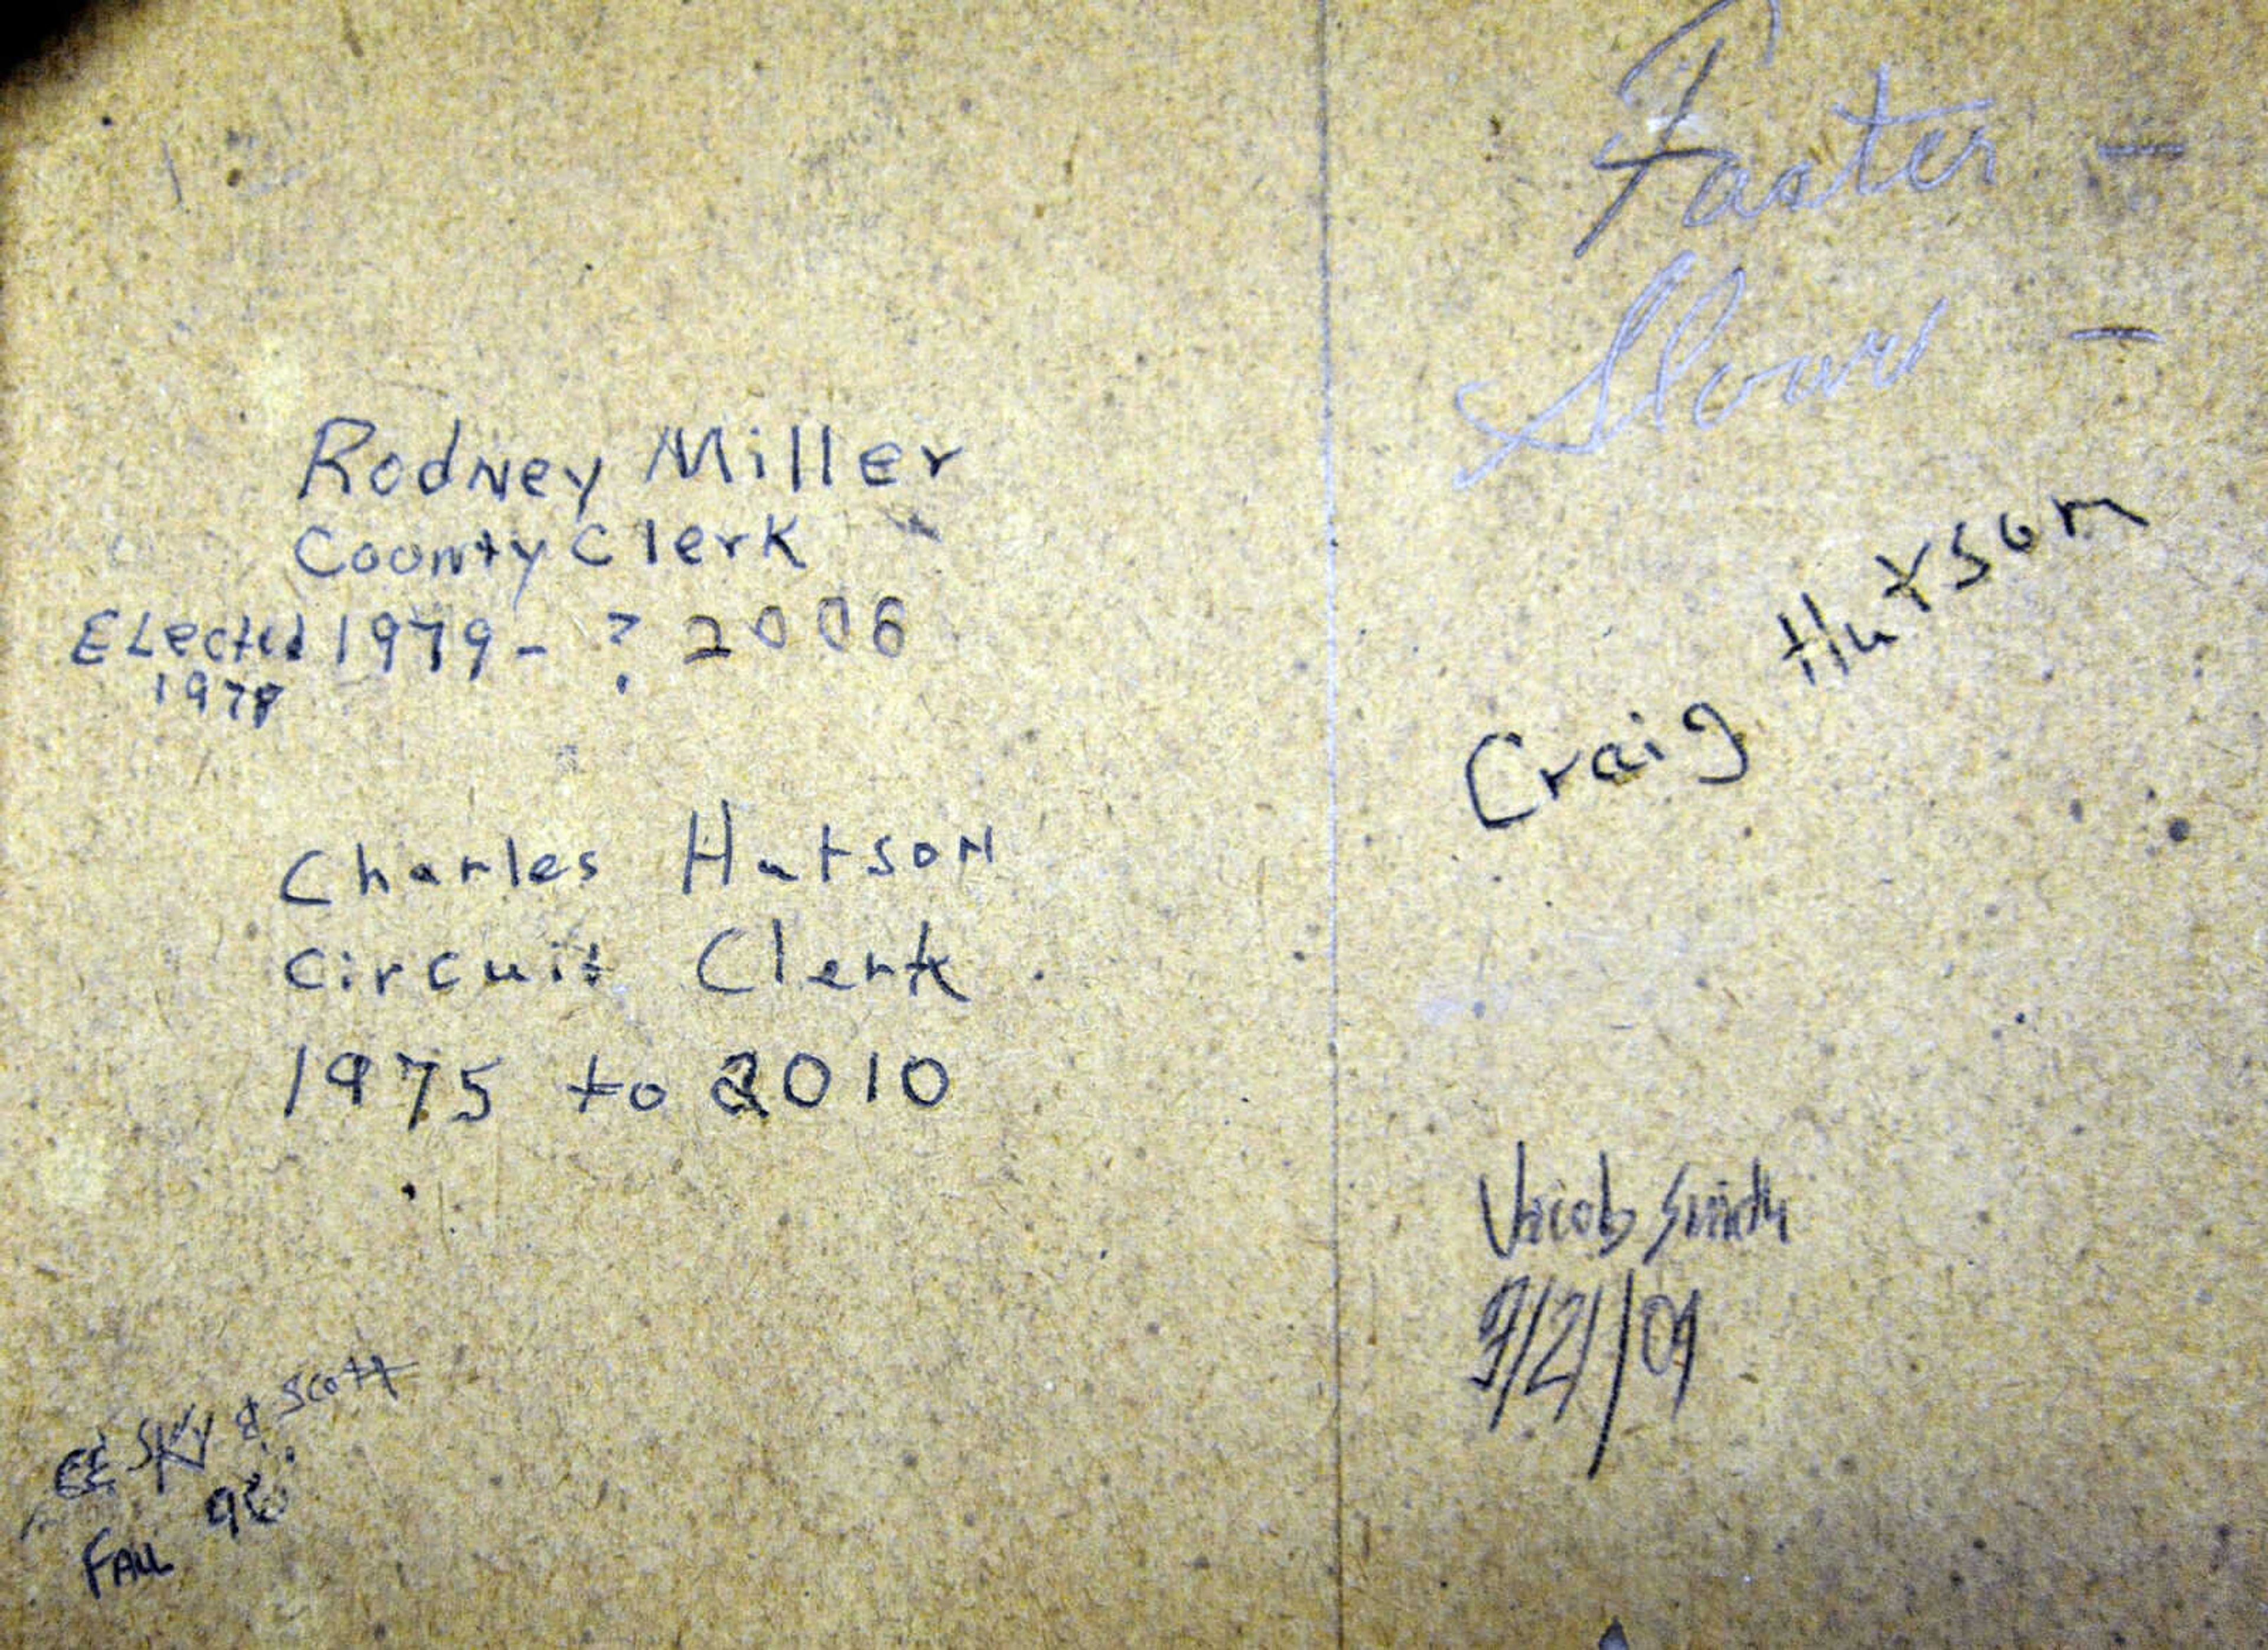 Rodney Miller
County Clerk
Elected 1979 - ? 2006
1978
Charles Hutson
Circuit Clerk
1975 to 2010
SKY & Scott
Fall 96
Faster -
Slower -
Craig Hutson
Jacob Smith
9/21/09